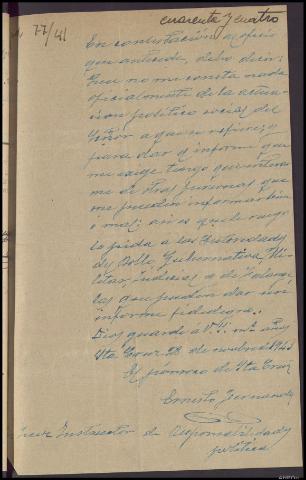 cuarenta y cuatro
77/41
En contestación al oficio
que antecede, debo decir:
Que no me consta nada
oficialmente de la actua-
cion político social del
Señor a que se refiere; y
para dar el informe que
me exige tengo que enterar
me de otras personas que
me pueden informar bien
o mal; asi es que le ruego
lo pida a las Autoridades
de Gubernativa, Mi-
litar, Judicial y de Falange
las que pueden dar un
informe fidedigno.
Dios guarde a V. S. ms. años
Sta Cruz 28 de novbre 1941
El párroco de Sta Cruz
Ernesto Fernandez
Juez Instructor de Responsabilidades
políticas